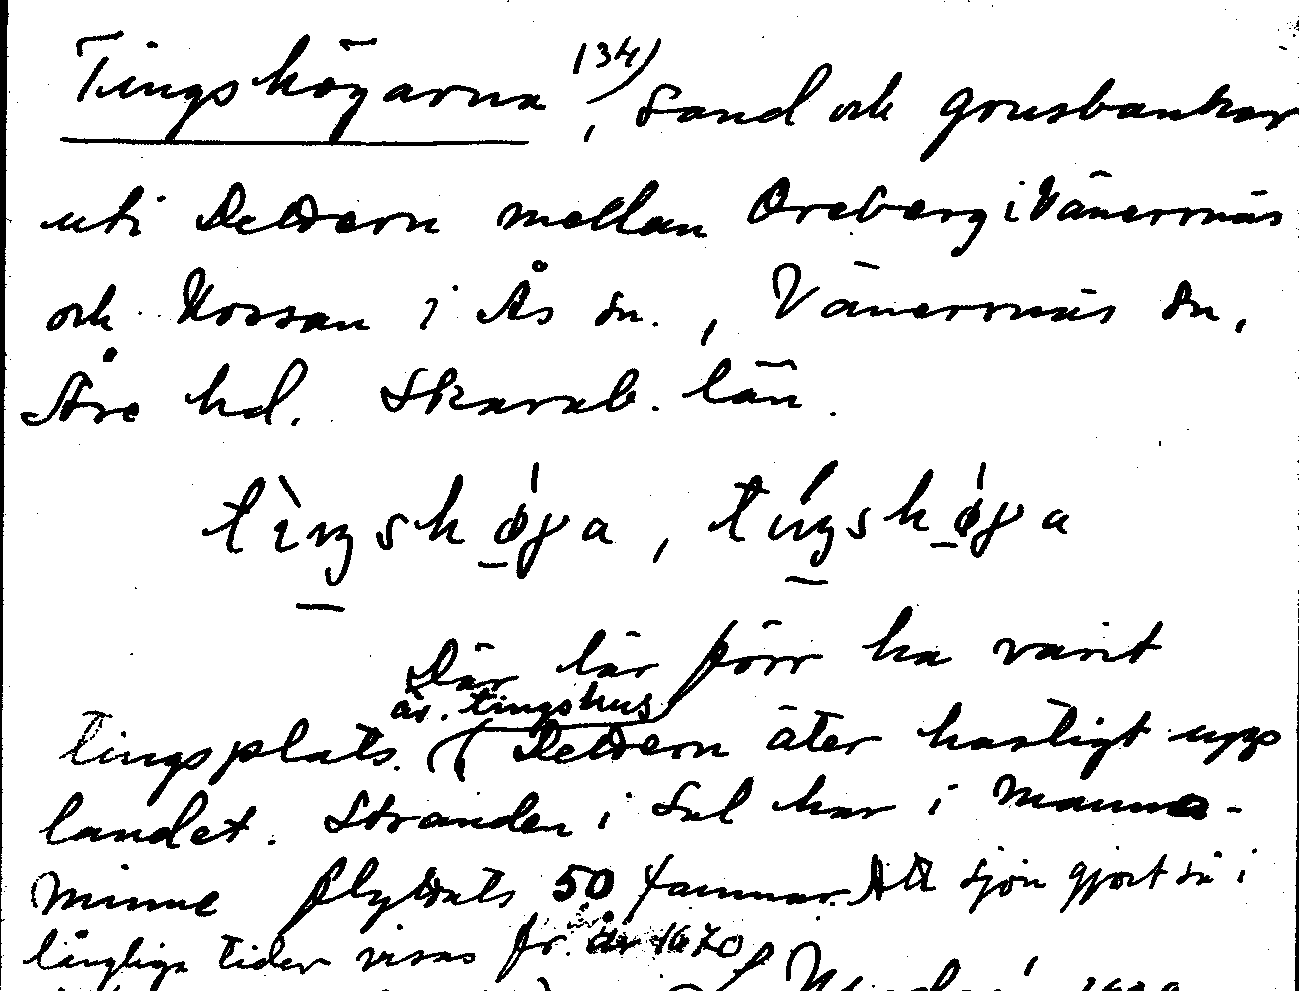 Tingshögarna 134), Sand och grusbankar
uti Dettern mellan Oreberg i Vänersnäs
och Kossan i Ås sn., Vänersnäs sn,
Åse hd. Skarab. län.
tìŋshøɣa, tíŋshøɣa
Där lär förr ha varit
är. tingshus
tingsplats. Dettern äter hastigt upp
landet. Stranden i Sal har i manna-
minne flyttats 50 famnar. Att sjön gjort så i
långliga tider visas fr. år 1670